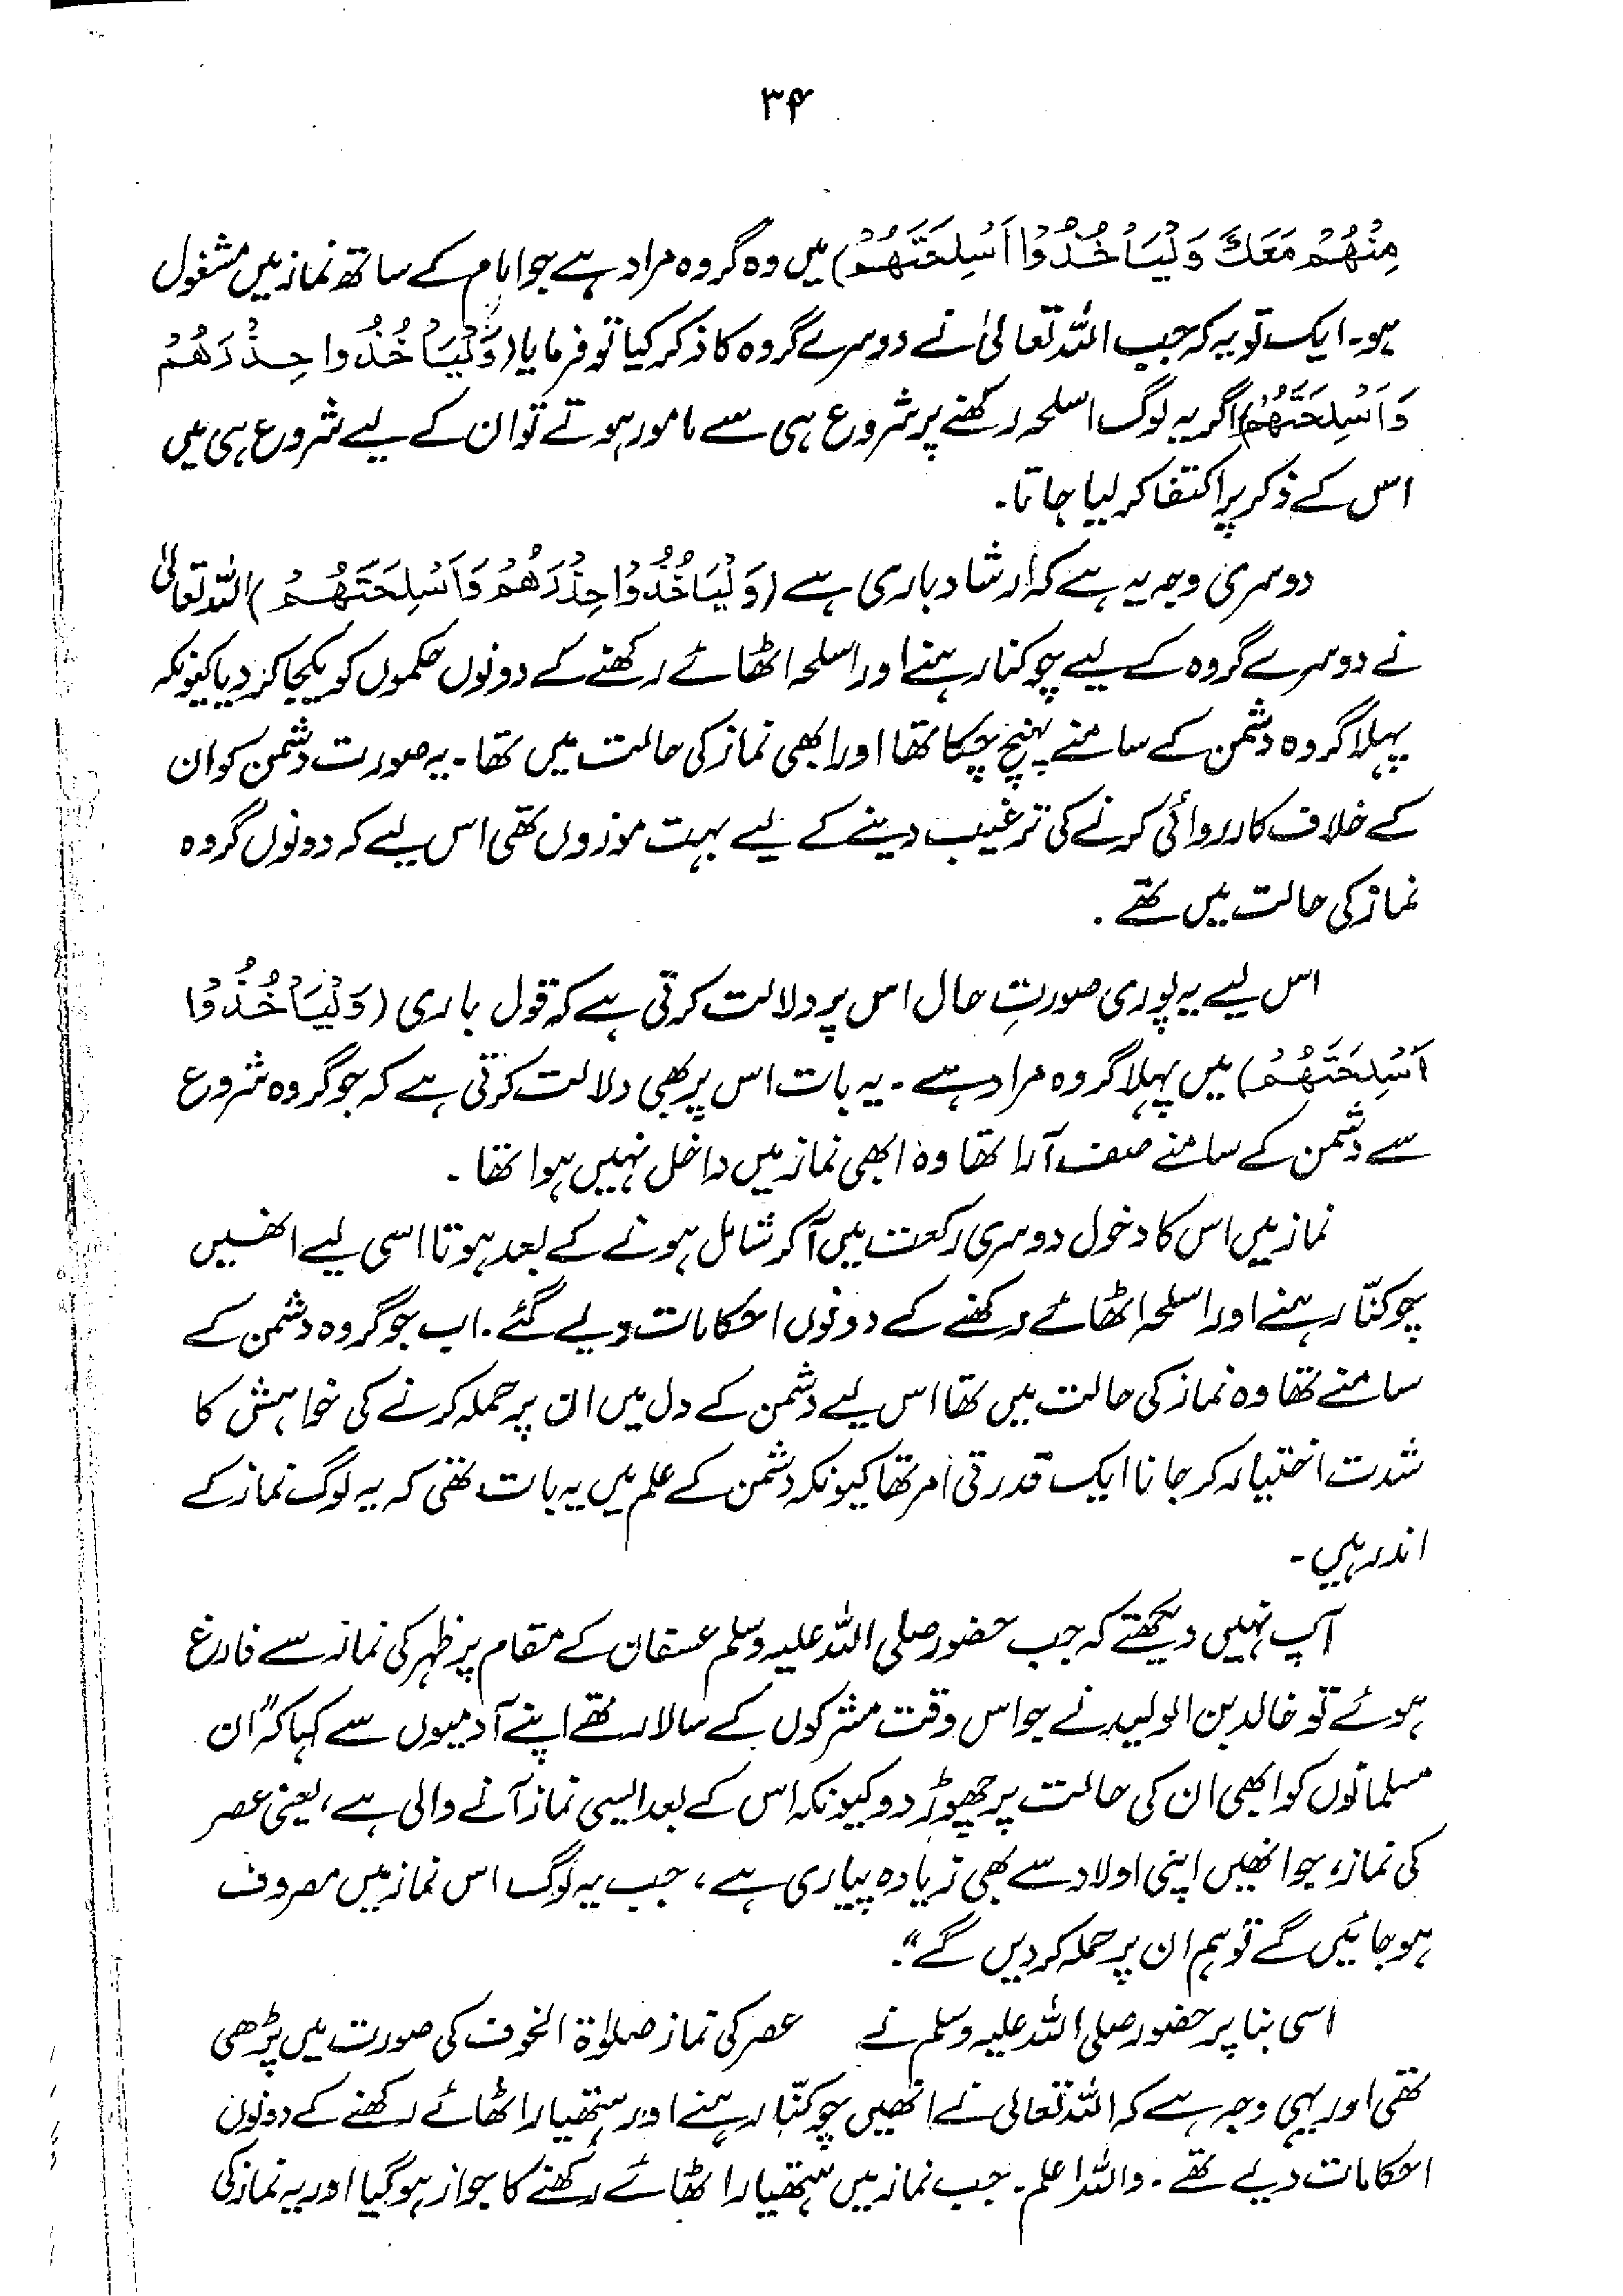 ۳۴
مِنْهُمْ مَعَكَ وَلْيَأْخُذُوْا اَسْلِحَتَهُمْ) میں وہ گروہ مراد ہے جو امام کے ساتھ نماز میں مشغول
ہو۔ ایک تو یہ کہ جب اللہ تعالیٰ نے دوسرے گروہ کا ذکر کیا تو فرمایا (وَلْيَأْخُذُوا حِذْرَهُمْ
وَاَسْلِحَتَهُمْ) اگر یہ لوگ اسلحہ رکھنے پر شروع ہی سے مامور ہوتے تو ان کے لیے شروع ہی میں
اس کے ذکر پر اکتفا کر لیا جاتا۔
دوسری وجہ یہ ہے کہ ارشاد باری ہے (وَلْيَأْخُذُوْا حِذْرَهُمْ وَاَسْلِحَتَهُمْ) اللہ تعالیٰ
نے دوسرے گروہ کے لیے چوکنا رہنے اور اسلحہ اٹھائے رکھنے کے دونوں حکموں کو یکجا کر دیا کیونکہ
پہلا گروہ دشمن کے سامنے پہنچ چکا تھا اور ابھی نماز کی حالت میں تھا۔ یہ صورت دشمن کو ان
کے خلاف کارروائی کرنے کی ترغیب دینے کے لیے بہت موزوں تھی اس لیے کہ دونوں گروہ
نماز کی حالت میں تھے۔
اس لیے یہ پوری صورتِ حال اس پر دلالت کرتی ہے کہ قول باری (وَلْيَأْخُذُوْا
اَسْلِحَتَهُمْ) میں پہلا گروہ مراد ہے۔ یہ بات اس پر بھی دلالت کرتی ہے کہ جو گروہ شروع
سے دشمن کے سامنے صف آرا تھا وہ ابھی نماز میں داخل نہیں ہوا تھا۔
نماز میں اس کا دخول دوسری رکعت میں آکر شامل ہونے کے بعد ہوتا اسی لیے انھیں
چوکنّا رہنے اور اسلحہ اٹھائے رکھنے کے دونوں احکامات دیے گئے۔ اب جو گروہ دشمن کے
سامنے تھا وہ نماز کی حالت میں تھا اس لیے دشمن کے دل میں ان پر حملہ کرنے کی خواہش کا
شدت اختیار کر جانا ایک قدرتی امر تھا کیونکہ دشمن کے علم میں یہ بات تھی کہ یہ لوگ نماز کے
اندر ہیں۔
آپ نہیں دیکھتے کہ جب حضور صلی اللہ علیہ وسلم عسفان کے مقام پر ظہر کی نماز سے فارغ
ہوئے تو خالد بن الولید نے جو اس وقت مشرکوں کے سالار تھے اپنے آدمیوں سے کہا کہ "ان
مسلمانوں کو ابھی ان کی حالت پر چھوڑ دو کیونکہ اس کے بعد ایسی نماز آنے والی ہے، یعنی عصر
کی نماز، جو انھیں اپنی اولاد سے بھی زیادہ پیاری ہے، جب یہ لوگ اس نماز میں مصروف
ہو جائیں گے تو ہم ان پر حملہ کر دیں گے"۔
اسی بنا پر حضور صلی اللہ علیہ وسلم نے عصر کی نماز صلوٰۃ الخوف کی صورت میں پڑھی
تھی اور یہی وجہ ہے کہ اللہ تعالیٰ نے انھیں چوکنّا رہنے اور ہتھیار اٹھائے رکھنے کے دونوں
احکامات دیے تھے۔ واللہ اعلم۔ جب نماز میں ہتھیار اٹھائے رکھنے کا جواز ہوگیا اور یہ نماز کی